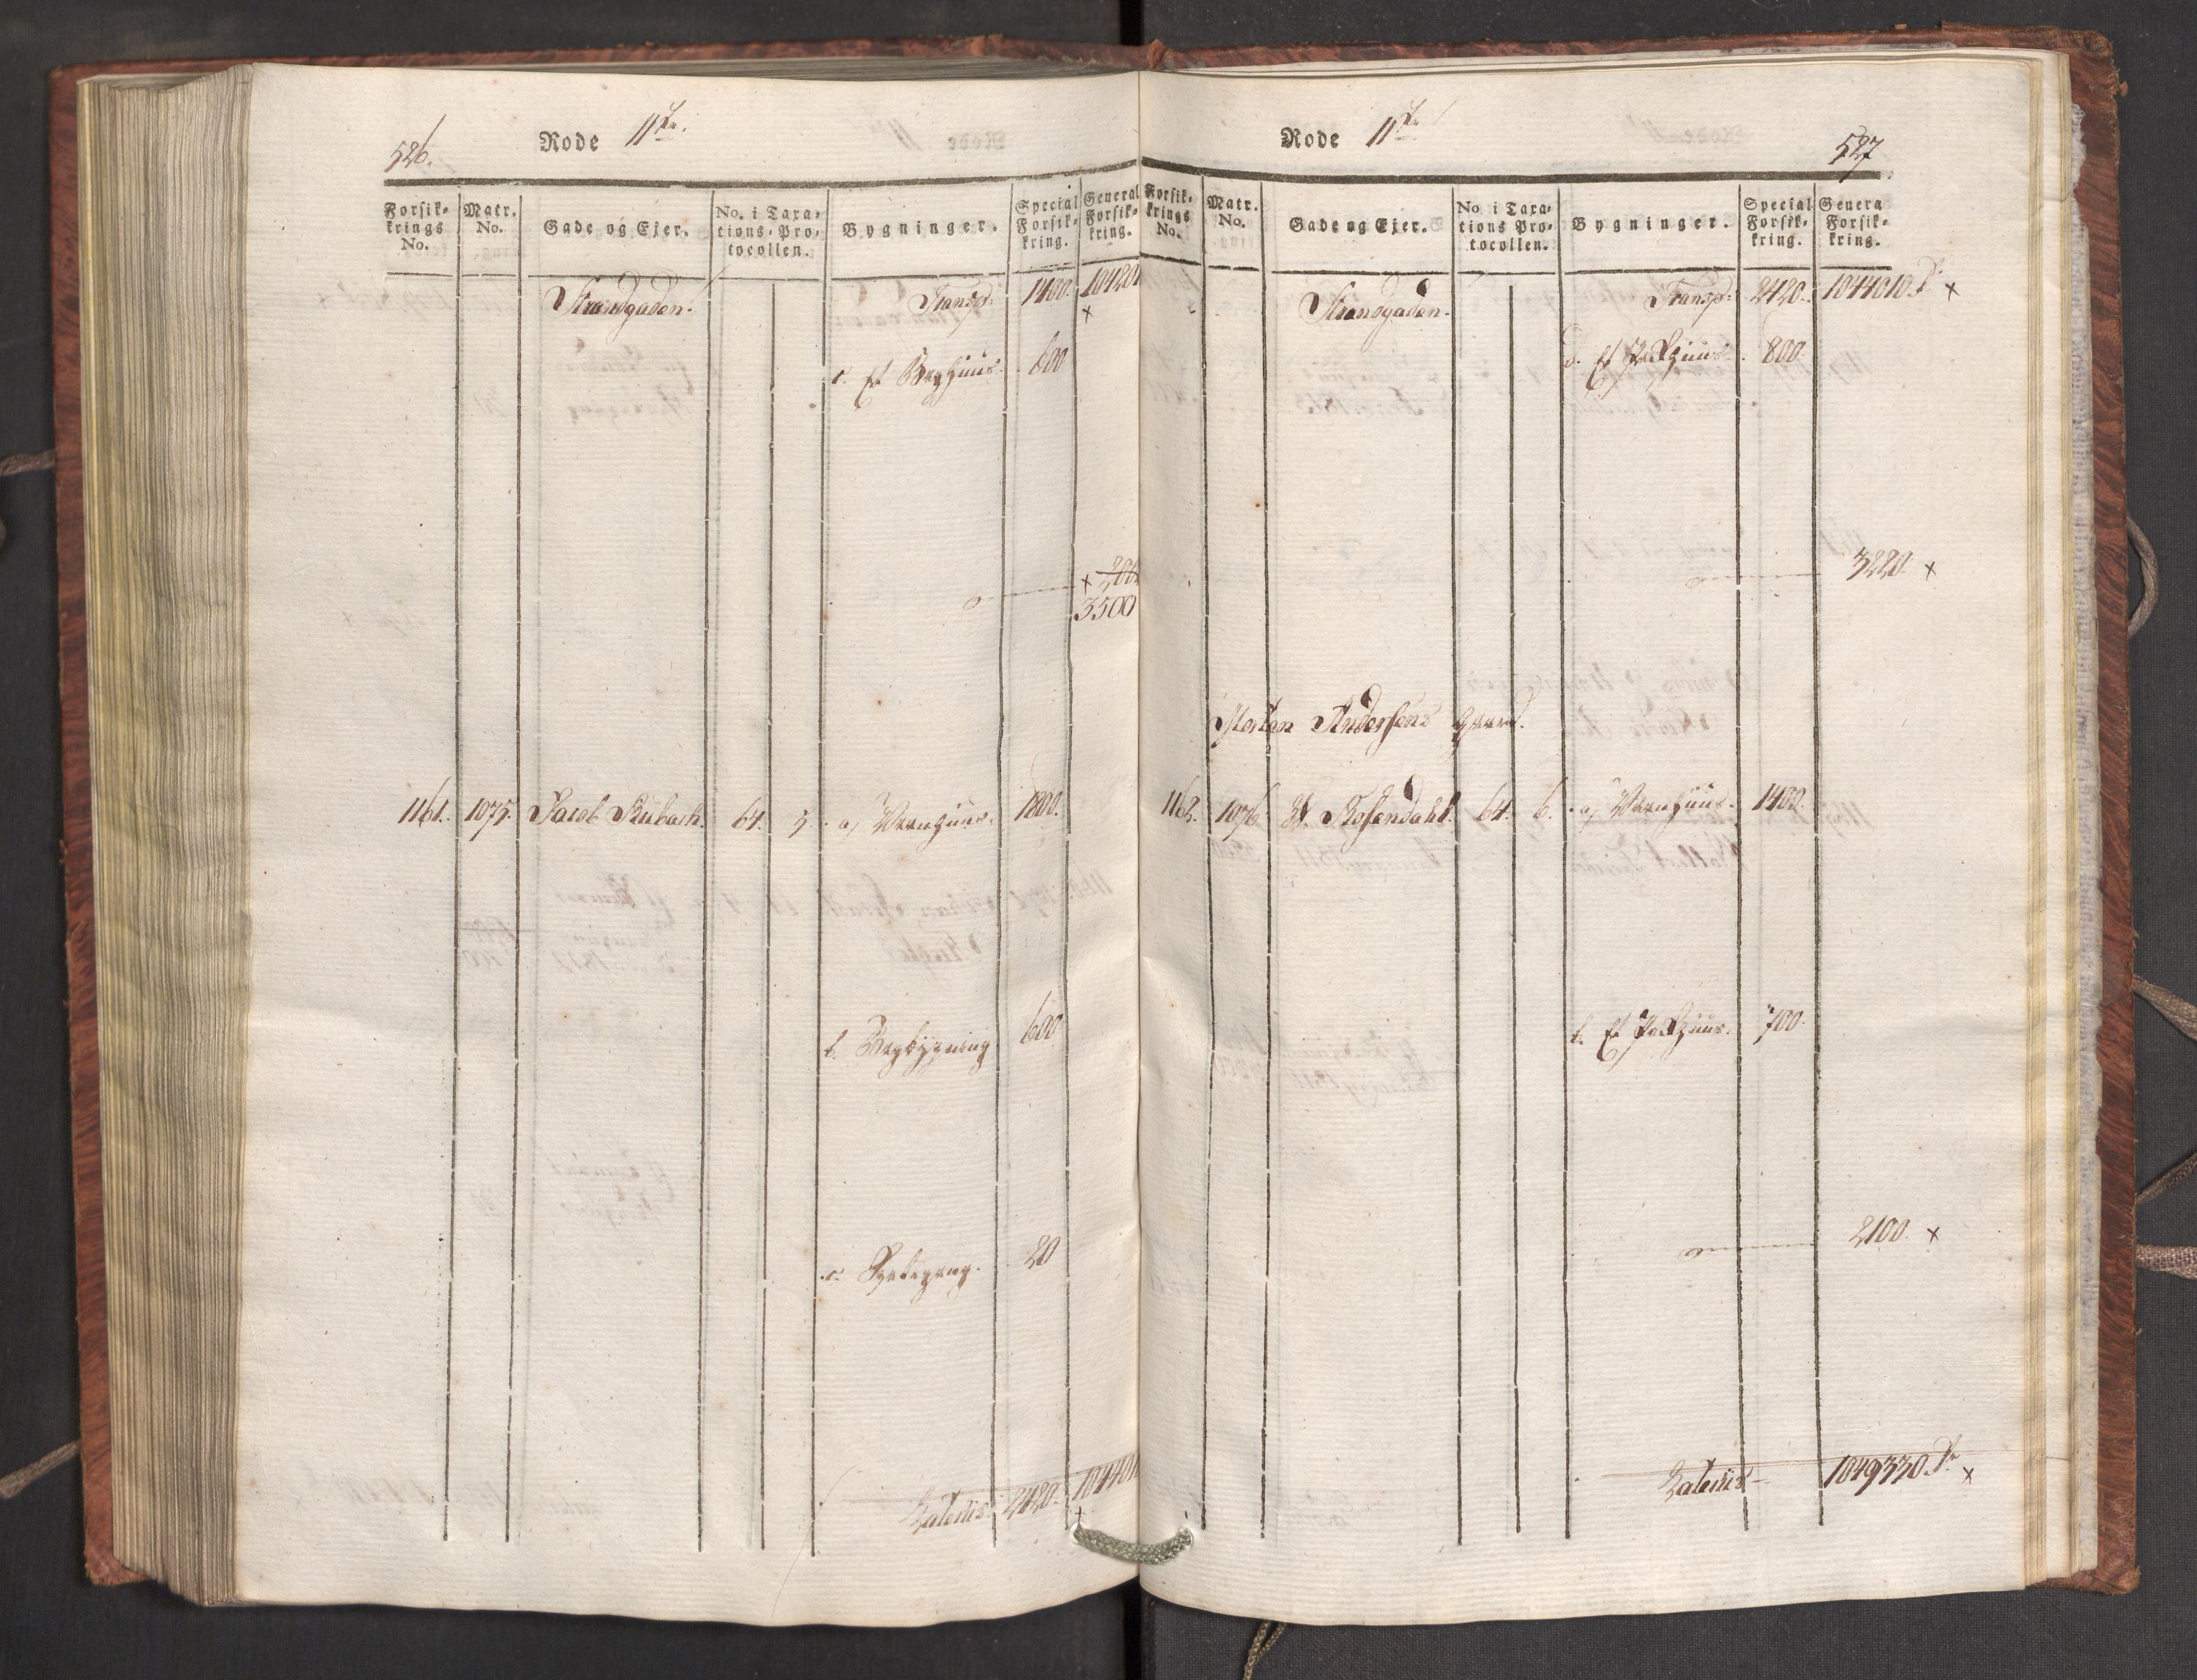 526.
Rode 11te
Forsik-
krings
No.
Matr.
No.
Gade og Ejer.
No. i Taxa-
tions-Pro-
tocollen.
Bygninger.
Special
Forsik-
kring.
General
Forsik-
kring.
Strandgaden. Transp: 1400.
x
c. Et Baghuus. 600
x
3500
1161. 1075. Jacob 64. 5. a, Vaanhuus. 1800.
b. Bagbygning 600
c. 20
Lateris 2420.
Rode 11te
527
Forsik-
krings
No.
Matr.
No.
Gade og Ejer.
No. i Taxa-
tions Pro-
tocollen.
Bygninger.
Special
Forsik-
kring.
Genera
Forsik-
kring.
Strandgaden. Transp: 2420. 1044010 x
d. Et Pakhuus. 800.
3220. x
Morten Andersens Gaard.
1162. 1076. Rosendahl. 64. 6. a, Vaanhuus. 1400.
b. Et Pakhuus. 700.
2100. x
Lateris 1049330 x